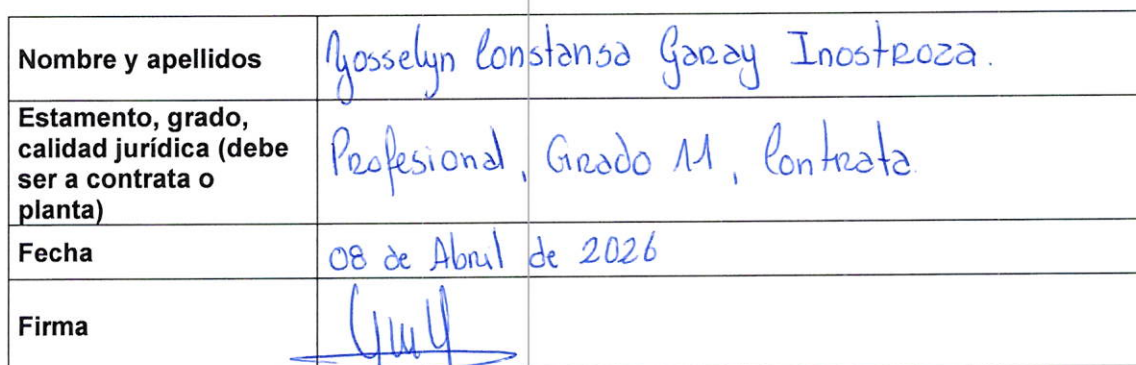 Nombre y apellidos
Yosselyn Constansa Garay Inostroza.
Estamento, grado,
calidad jurídica (debe
ser a contrata o
planta)
Profesional, Grado 11, Contrata.
Fecha
08 de Abril de 2026
Firma